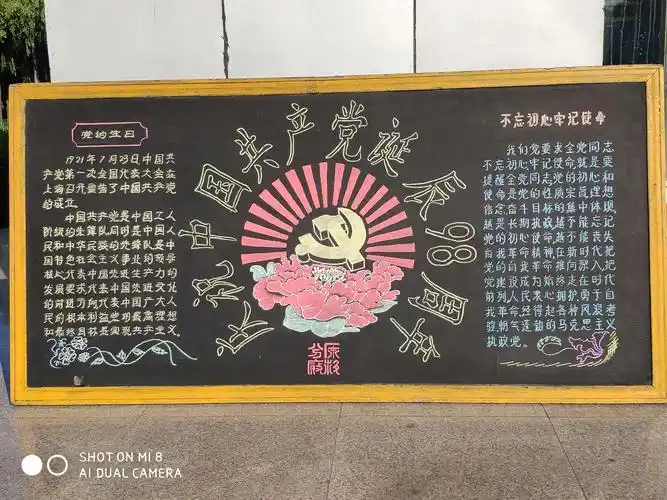 党的生日
1921年7月23日中国共
产党第一次全国代表大会在
上海召开宣告了中国共产党
的成立。
中国共产党是中国工人
阶级的先锋队同时是中国人
民和中华民族的先锋队是中
国特色社会主义事业的领导
核心代表中国先进生产力的
发展要求代表中国先进文化
的前进方向代表中国广大人
民的根本利益党的最高理想
和最终目标是实现共产主义
庆祝中国共产党诞辰98周年
不忘初心牢记使命
我们党要求全党同志
不忘初心牢记使命,就是要
提醒全党同志,党的初心和
使命是党的性质宗旨理想
信念奋斗目标的集中体现,
越是长期执政,越不能忘记
党的初心使命,越不能丧失
自我革命精神,在新时代把
党的自我革命推向深入,把
党建设成为始终走在时代
前列人民衷心拥护勇于自
我革命,经得起各种风浪考
验,朝气蓬勃的马克思主义
执政党。
SHOT ON MI 8
AI DUAL CAMERA